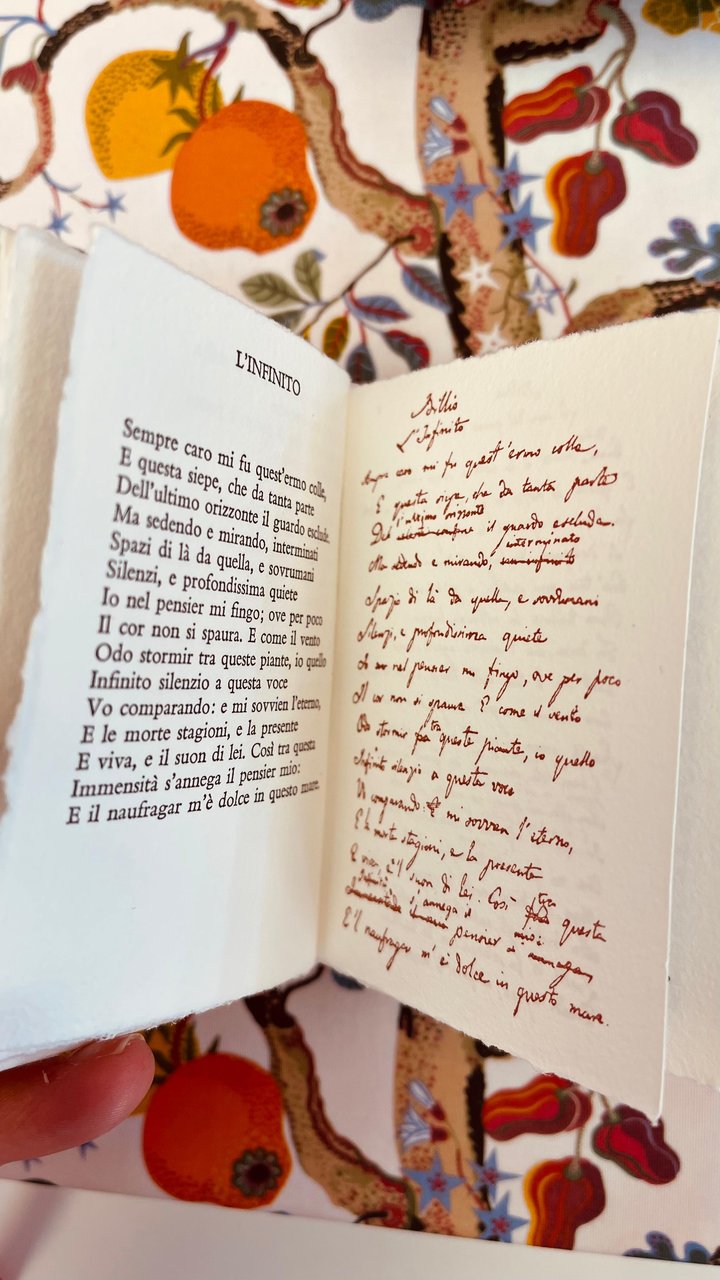 L'INFINITO
Sempre caro mi fu quest'ermo colle,
E questa siepe, che da tanta parte
Dell'ultimo orizzonte il guardo esclude.
Ma sedendo e mirando, interminati
Spazi di là da quella, e sovrumani
Silenzi, e profondissima quiete
Io nel pensier mi fingo; ove per poco
Il cor non si spaura. E come il vento
Odo stormir tra queste piante, io quello
Infinito silenzio a questa voce
Vo comparando: e mi sovvien l'eterno,
E le morte stagioni, e la presente
E viva, e il suon di lei. Così tra questa
Immensità s'annega il pensier mio:
E il naufragar m'è dolce in questo mare.
L'Infinito
Sempre caro mi fu quest'ermo colle,
E questa siepe, che da tanta parte
l'ultimo orizzonte
Del il guardo esclude.
interminato
Ma sedendo e mirando,
Spazio di là da quella, e sovrumani
Silenzi, e profondissima quiete
Io nel pensier mi fingo, ove per poco
Il cor non si spaura. E come il vento
tra
Odo stormir queste piante, io quello
Infinito silenzio a questa voce
Vo comparando: E mi sovvien l'eterno,
E le morte stagioni, e la presente
E viva, e 'l suon di lei. Così tra questa
s'annega il pensier mio:
E 'l naufragar m'è dolce in questo mare.